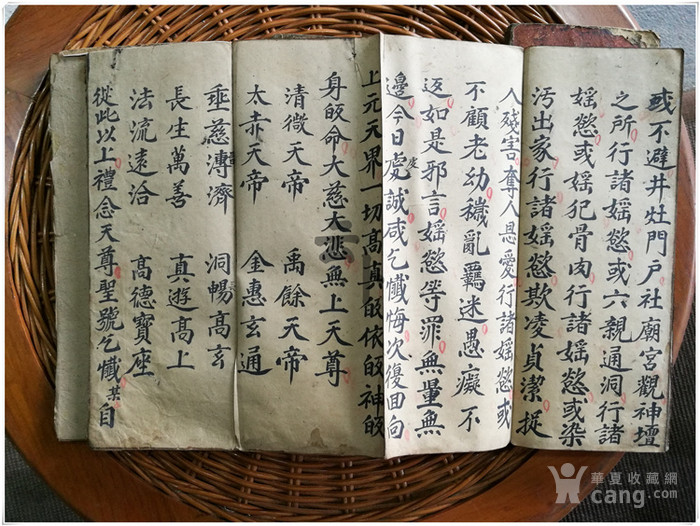 或不避井灶門户社廟宮觀神壇
之所行諸婬慾或六親通洞行諸
婬慾或婬犯骨肉行諸婬慾或染
汚出家行諸婬慾欺凌貞潔捉
人殘害奪人恩愛行諸婬慾或
不顧老幼穢亂羈迷愚癡不
返如是邪言婬慾等罪無量無
邊今日虔誠咸乞懺悔次復回向
上元天界一切高真皈依皈神皈
身皈命大慈大悲無上天尊
清微天帝 禹餘天帝
太赤天帝 金惠玄通
垂慈溥濟 洞暢高玄
長生萬善 真遊高上
法流遠洽 高德寶座
從此以上禮念天尊聖號乞懺其自
華夏收藏網
cang.com